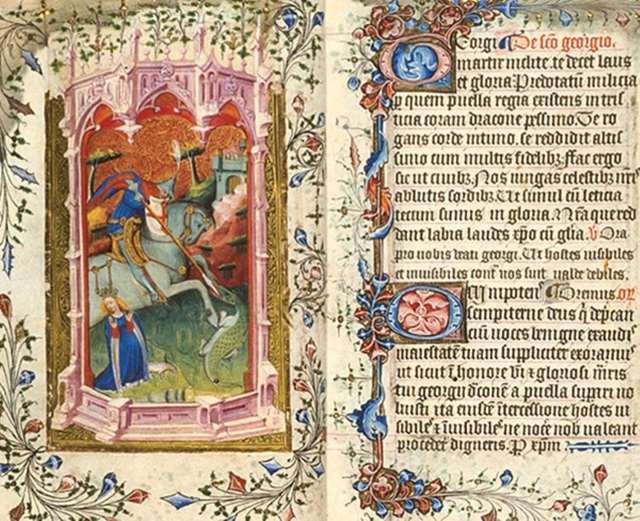 Georgi De sco georgio.
martir inclite. te decet laus
et gloria Predotatum milicia
p quem puella regia existens in tris
ticia coram dracone pessimo. Te ro
gans corde intimo. se reddidit altis
simo cum multis fidelibz. ffac ergo
sic ut civibz. Nos iungas celestibz nris
ablutis sordibz. Ut simul cu leticia
tecum simus in gloria. Nra que red
dant labia laudes xpo cu glia. v Ora
pro nobis beati georgi. Ut hostes visibiles
et invisibiles cont nos sint valde debiles.
Omnipotens Oremus. or
sempiterne deus q depcan
ciu voces benigne exaudi
maiestatem tuam suppliciter exoramus
ut sicut i honore bti et gloriosi mris
tui georgii dconem a puella supari vo
luisti ita eiusde itercessione hostes vi
sibiles et ivisibiles ne noce nob valeant
procedere digneris. P xpm